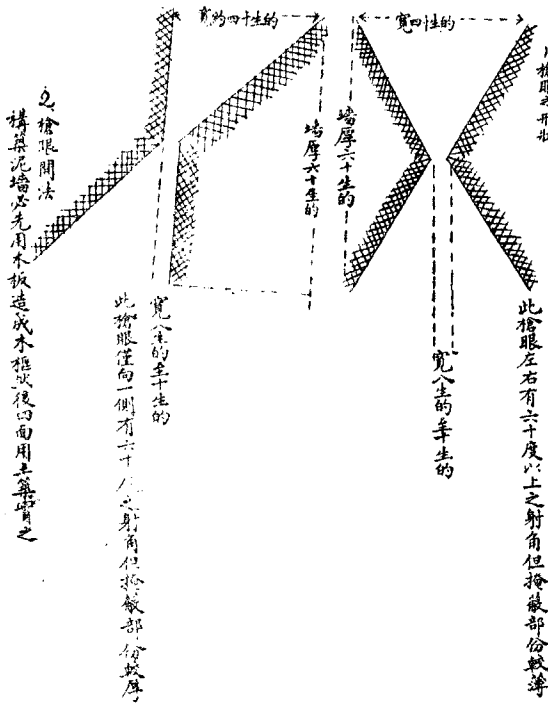 1、槍眼之形狀
寬四十生的
墻厚六十生的
寬八生的至十生的
此槍眼左右有六十度以上之射角但掩蔽部份較薄
寬約四十生的
墻厚六十生的
寬八生的至十生的
此槍眼僅向一側有六十之射角但掩蔽部份較厚
2、槍眼開法
構築泥墻必先用木板造成木框然後四面用土築實之